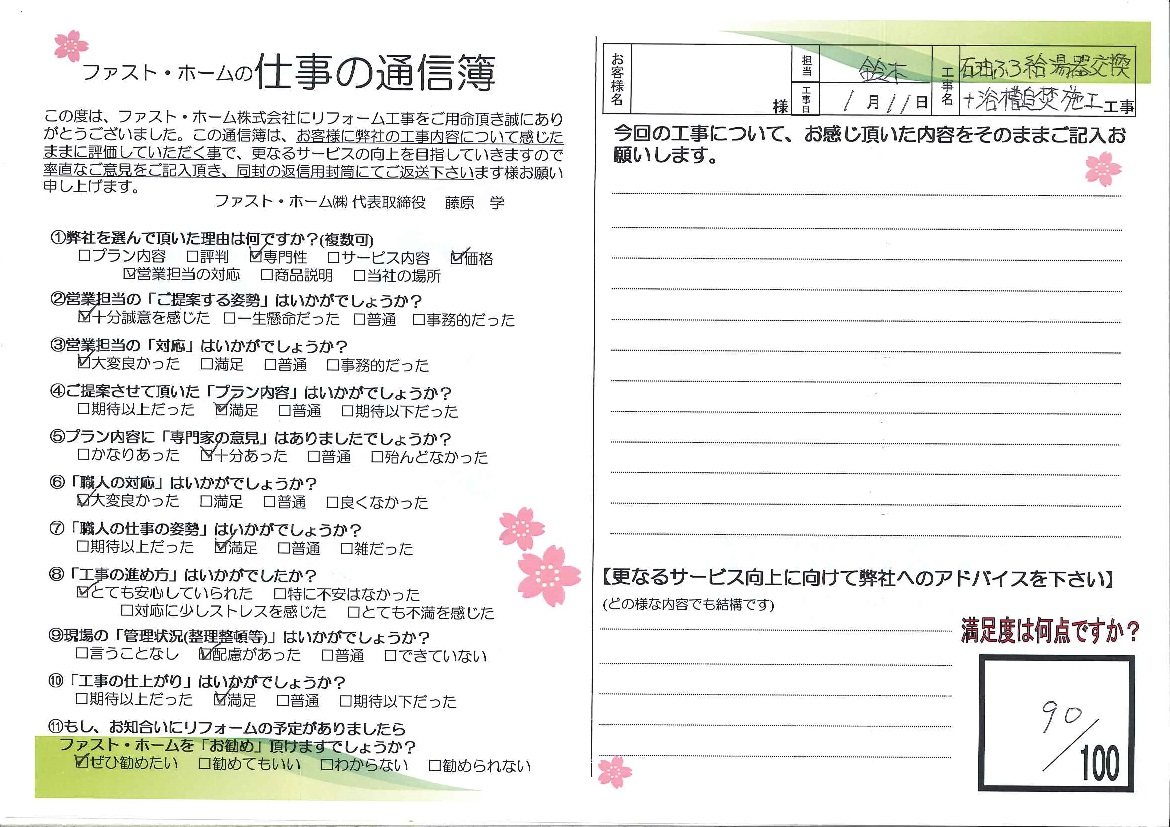 ファスト・ホームの仕事の通信簿
この度は、ファスト・ホーム株式会社にリフォーム工事をご用命頂き誠にあり
がとうございました。この通信簿は、お客様に弊社の工事内容について感じた
ままに評価していただく事で、更なるサービスの向上を目指していきますので
率直なご意見をご記入頂き、同封の返信用封筒にてご返送下さいます様お願い
申し上げます。
ファスト・ホーム㈱ 代表取締役 藤原 学
①弊社を選んで頂いた理由は何ですか?(複数可)
☐プラン内容 ☐評判 ☑専門性 ☐サービス内容 ☑価格
☑営業担当の対応 ☐商品説明 ☐当社の場所
②営業担当の「ご提案する姿勢」はいかがでしょうか?
☑十分誠意を感じた ☐一生懸命だった ☐普通 ☐事務的だった
③営業担当の「対応」はいかがでしょうか?
☑大変良かった ☐満足 ☐普通 ☐事務的だった
④ご提案させて頂いた「プラン内容」はいかがでしょうか?
☐期待以上だった ☑満足 ☐普通 ☐期待以下だった
⑤プラン内容に「専門家の意見」はありましたでしょうか?
☐かなりあった ☑十分あった ☐普通 ☐殆んどなかった
⑥「職人の対応」はいかがでしょうか?
☑大変良かった ☐満足 ☐普通 ☐良くなかった
⑦「職人の仕事の姿勢」はいかがでしょうか?
☐期待以上だった ☑満足 ☐普通 ☐雑だった
⑧「工事の進め方」はいかがでしたか?
☑とても安心していられた ☐特に不安はなかった
☐対応に少しストレスを感じた ☐とても不満を感じた
⑨現場の「管理状況(整理整頓等)」はいかがでしょうか?
☐言うことなし ☑配慮があった ☐普通 ☐できていない
⑩「工事の仕上がり」はいかがでしょうか?
☐期待以上だった ☑満足 ☐普通 ☐期待以下だった
⑪もし、お知合いにリフォームの予定がありましたら
ファスト・ホームを「お勧め」頂けますでしょうか?
☑ぜひ勧めたい ☐勧めてもいい ☐わからない ☐勧められない
お客様名 様 担当 鈴木 工事名 石油ふろ給湯器交換
工事日 1月11日 +浴槽自焚施工工事
今回の工事について、お感じ頂いた内容をそのままご記入お
願いします。
【更なるサービス向上に向けて弊社へのアドバイスを下さい】
(どの様な内容でも結構です)
満足度は何点ですか?
90/100